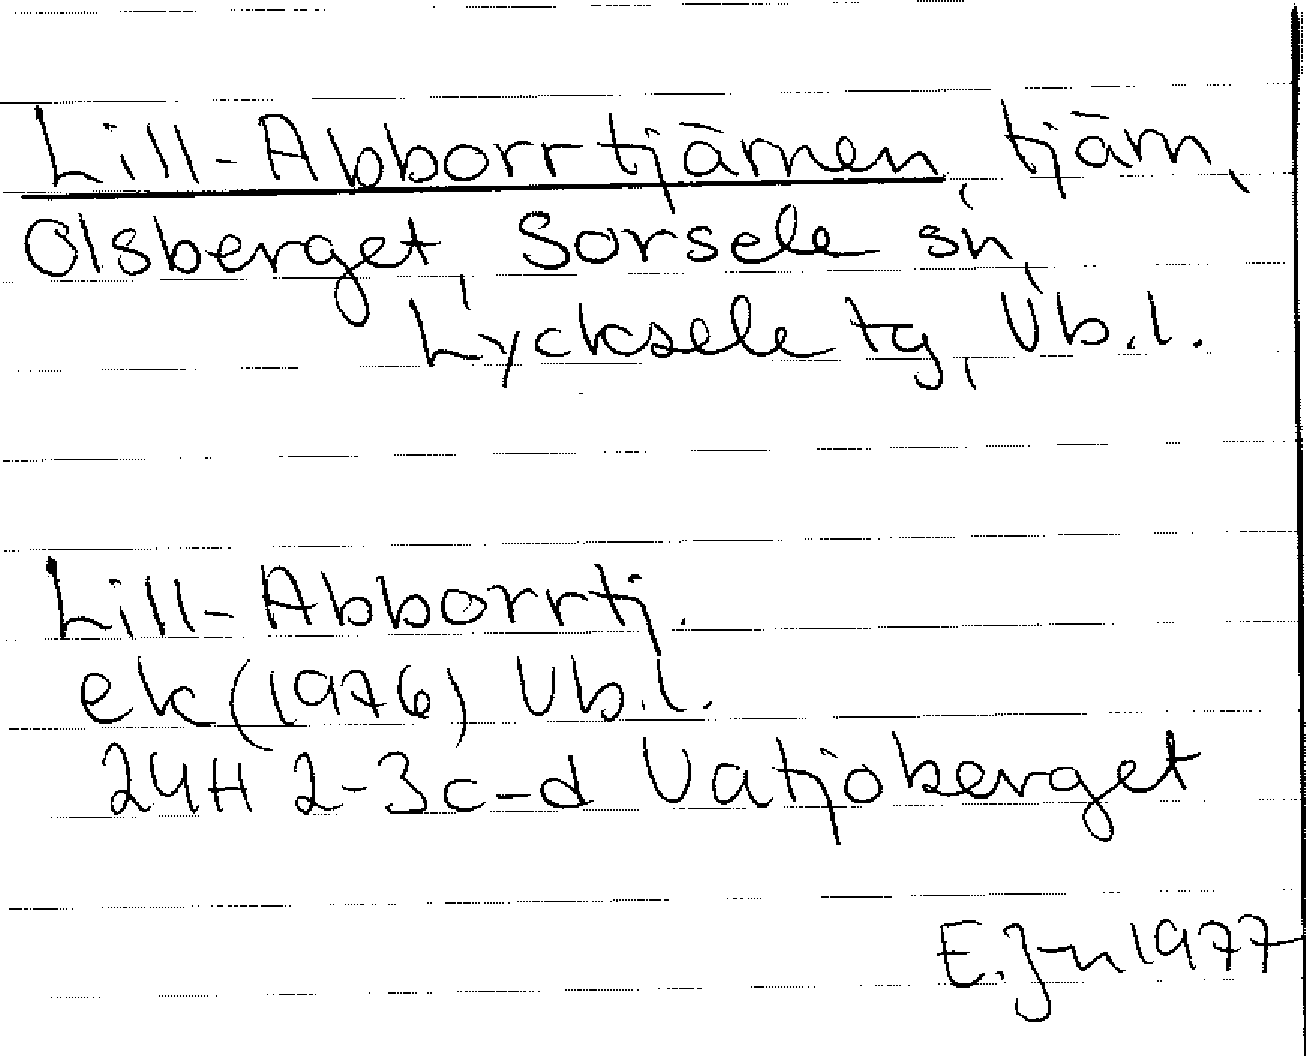 Lill-Abborrtjärnen, tjärn,
Olsberget, Sorsele sn,
Lycksele tg, Vb.l.
Lill-Abborrtj.
ek (1976) Vb.l.
24H 2-3c-d Vatjoberget
E.J-n 1977